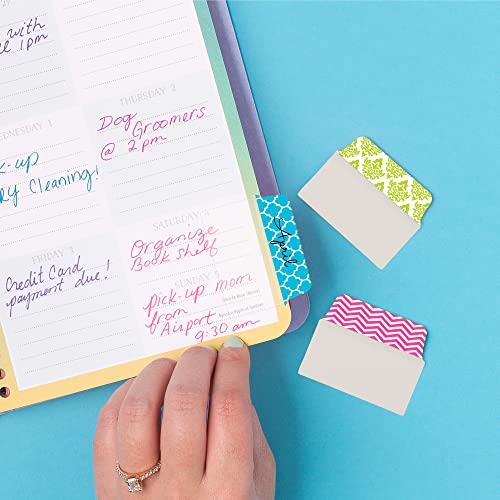 with
1pm
THURSDAY 2
Dog Groomers
@ 2 pm
WEDNESDAY 1
ck-up
ry Cleaning!
SATURDAY 4
Organize
Book shelf
FRIDAY 3
Credit Card
payment due!
SUNDAY 5
Pick-up mom
from
Airport
9:30 am
April